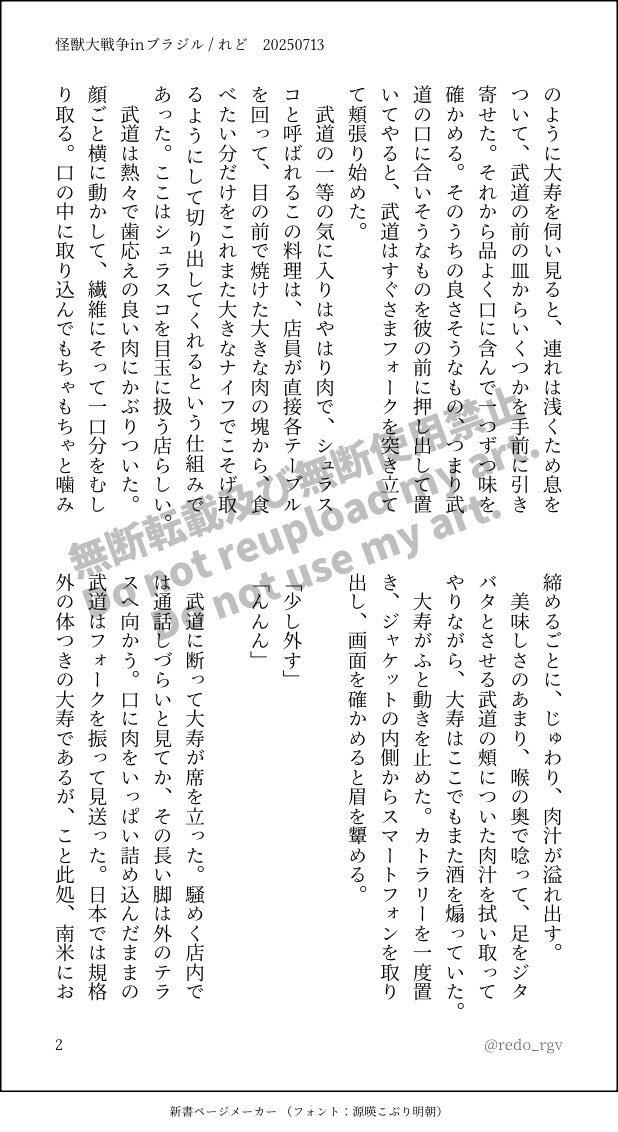 怪獣大戦争inブラジル / れど　20250713
のように大寿を伺い見ると、連れは浅くため息を
ついて、武道の前の皿からいくつかを手前に引き
寄せた。それから品よく口に含んで一つずつ味を
確かめる。そのうちの良さそうなもの、つまり武
道の口に合いそうなものを彼の前に押し出して置
いてやると、武道はすぐさまフォークを突き立て
て頬張り始めた。
　武道の一等の気に入りはやはり肉で、シュラス
コと呼ばれるこの料理は、店員が直接各テーブル
を回って、目の前で焼けた大きな肉の塊から、食
べたい分だけをこれまた大きなナイフでこそげ取
るようにして切り出してくれるという仕組みで
あった。ここはシュラスコを目玉に扱う店らしい。
　武道は熱々で歯応えの良い肉にかぶりついた。
顔ごと横に動かして、繊維にそって一口分をむし
り取る。口の中に取り込んでもちゃもちゃと噛み
締めるごとに、じゅわり、肉汁が溢れ出す。
　美味しさのあまり、喉の奥で唸って、足をジタ
バタとさせる武道の頬についた肉汁を拭い取って
やりながら、大寿はここでもまた酒を煽っていた。
　大寿がふと動きを止めた。カトラリーを一度置
き、ジャケットの内側からスマートフォンを取り
出し、画面を確かめると眉を顰める。
「少し外す」
「んんん」
　武道に断って大寿が席を立った。騒めく店内で
は通話しづらいと見てか、その長い脚は外のテラ
スへ向かう。口に肉をいっぱい詰め込んだままの
武道はフォークを振って見送った。日本では規格
外の体つきの大寿であるが、こと此処、南米にお
無断転載及び無断使用禁止
Do not reupload my art.
Do not use my art.
2
@redo_rgv
新書ページメーカー（フォント：源暎こぶり明朝）